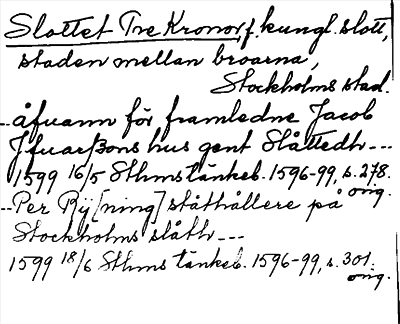 Slottet Tre Kronor, f. kungl. slott,
staden mellan broarna,
Stockholms stad.
--åfuann för framledne Jacob
Ifuarßons hus gent Slåttedh ---
1599 16/5 Sthms tänkeb. 1596-99, s. 278.
orig.
--Per Rÿ[ning] ståthållere på
Stockholms slåth ---
1599 18/6 Sthms tänkeb. 1596-99, s. 301.
orig.